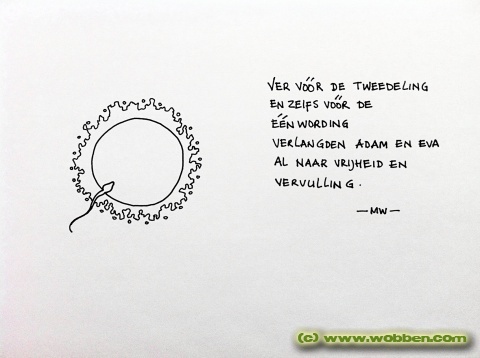 VER VÓÓR DE TWEEDELING
EN ZELFS VÓÓR DE
ÉÉNWORDING
VERLANGDEN ADAM EN EVA
AL NAAR VRIJHEID EN
VERVULLING.
— MW —
(c) www.wobben.com